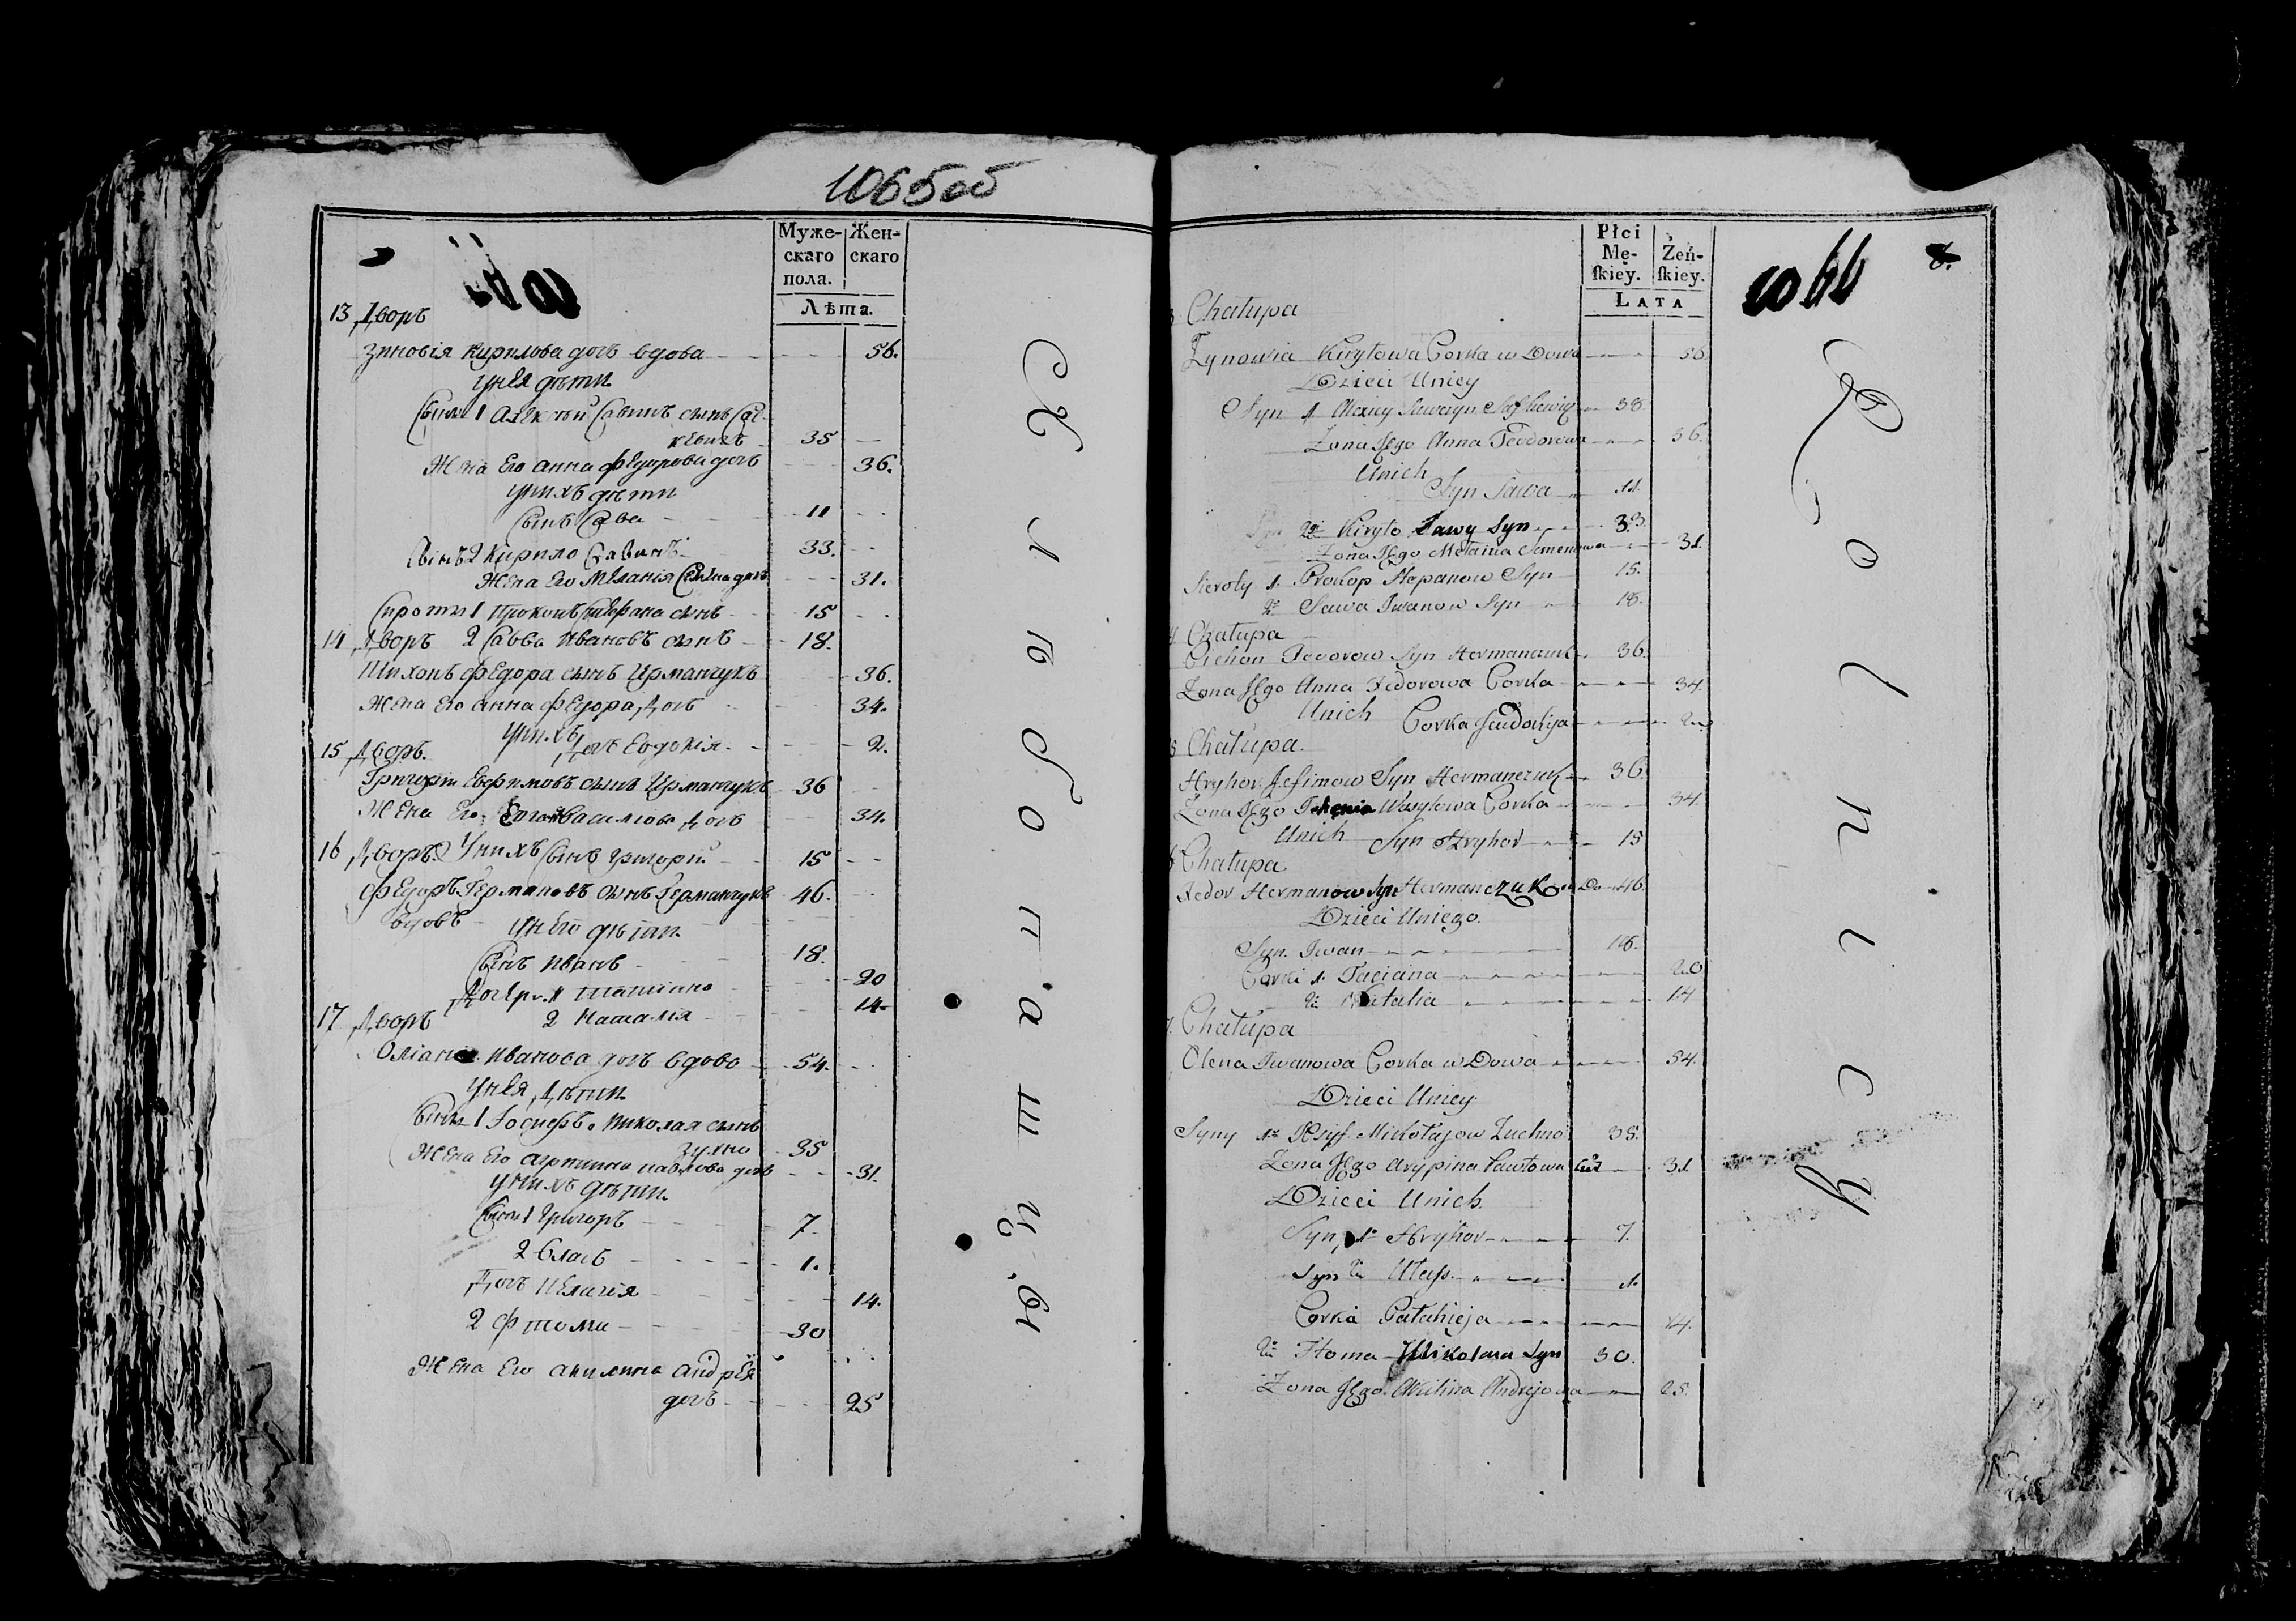 1065об
Муже-
скаго
пола.
Жен-
скаго
Лѣта.
13 Дворъ
Зиновія Кирилова дочь вдова 56.
у нея дѣти
Сыны 1 Алексѣй Савинъ сынъ Сас-
кевичъ 35
Жена Его Анна Федорова дочь 36.
у нихъ дѣти
Сынъ Сава 11
Сынъ 2 Кирило Савинъ 33.
Жена Его Меланія дочь 31.
Сироты 1 Прокопъ Стефана сынъ 15
14 Дворъ 2 Савва Ивановъ сынъ 18.
Тихонъ Федора сынъ Ирманчукъ 36.
Жена Его Анна Федора дочь 34.
у нихъ дочь Евдокія 2.
15 Дворъ.
Григорій Евфимовъ сынъ Ирманчукъ 36
Жена Его Василіова дочь 34.
16 Дворъ У нихъ Сынъ Григорій 15
Федоръ Германовъ сынъ Германчукъ 46.
Вдовъ у него дѣти
Сынъ Иванъ 18.
Дочери 1 Татіана 20
17 Дворъ 2 Наталія 14
Иванова дочь вдова 54.
у нея дѣти
Сыны 1 Іосифъ Николая сынъ
Зухно 35
Жена Его Агрипина Павлова дочь 31.
у нихъ дѣти
Сыны 1 Григоръ 7.
2 Власъ 1.
Дочь Пелагія 14.
2 Фтома 30
Жена Его Акилина Андрея
дочь 25
Хлѣбопашцы
Płci
Mę-
ſkiey.
Żeń-
ſkiey.
LATA
8.
Chałupa
Zynowia Kiryłowa Corka w Dowa 56.
Dzieci Uniey
Syn 1 Alexiey Sawazyn Saſkiewicz 38.
Zona Jego Anna Teodorowa 36.
Unich
Syn Sawa 11.
2. Kiryło Sawy Syn 33.
Zona Jego Mełania Semenowa 31.
Sieroty 1. Prokop Stepanow Syn 15.
2. Sawa Iwanow Syn 18.
4 Chałupa
Cichon Teodorow Syn Hermanczuk 36.
Zona Jego Anna Fedorowa Corka 34.
Unich Corka Jeudokija 2.
5 Chałupa.
Hryhor Jefimow Syn Hermanczuk 36.
Zona Jego Wasylowa Corka 34.
Unich Syn Hryhor 15
6 Chałupa
Fedor Hermanow Syn Hermanczuk w Do 46.
Dzieci Uniego.
Syn. Iwan 18.
Corki 1. Taciana 20
2. Natalia 14
7. Chałupa
Olena Iwanowa Corka w Dowa 54.
Dzieci Uniey
Syny 1. Josyf Mikołajow Zuchno 38.
Zona Jego Arypina Pawłowa Cur 31
Dzieci Unich.
Syn 1. Hryhor 7.
Syn 2. Ułaſ 1.
Corka Pałahieja 14.
2. Htoma Mikołaia Syn 30.
Zona Jego Akilina Andrejowa 25.
Rolnicy